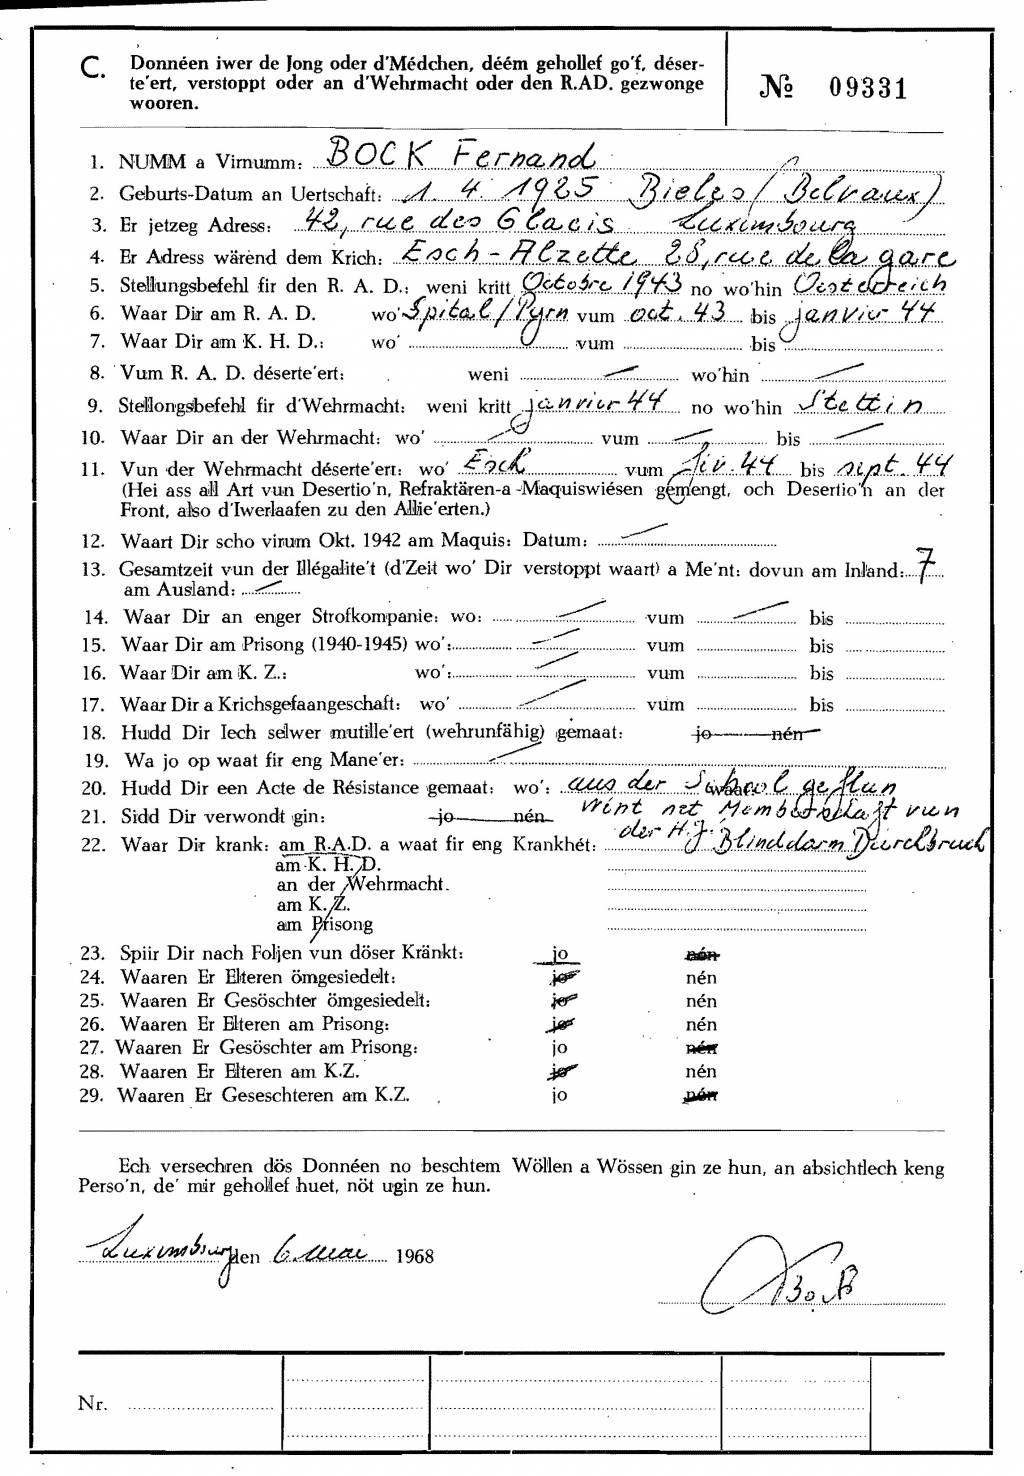 C. Donnéen iwer de Jong oder d'Médchen, déém gehollef go'f, déser-
te'ert, verstoppt oder an d'Wehrmacht oder den R.AD. gezwonge
wooren.
№ 09331
1. NUMM a Virnumm: BOCK Fernand
2. Geburts-Datum an Uertschaft: 1. 4. 1925 Bieles (Belvaux)
3. Er jetzeg Adress: 42, rue des Glacis Luxembourg
4. Er Adress wärend dem Krich: Esch-Alzette 28, rue de la gare
5. Stellungsbefehl fir den R. A. D.: weni kritt Octobre 1943 no wo'hin Oesterreich
6. Waar Dir am R. A. D. wo' Spital/Pyrn vum oct. 43 bis janvier 44
7. Waar Dir am K. H. D.: wo' vum bis
8. Vum R. A. D. déserte'ert: weni wo'hin
9. Stellongsbefehl fir d'Wehrmacht: weni kritt janvier 44 no wo'hin Stettin
10. Waar Dir an der Wehrmacht: wo' vum bis
11. Vun der Wehrmacht déserte'ert: wo' Esch vum fiv. 44 bis sept. 44
(Hei ass all Art vun Desertio'n, Refraktären-a -Maquiswiésen gemengt, och Desertio'n an der
Front, also d'Iwerlaafen zu den Allie'erten.)
12. Waart Dir scho virum Okt. 1942 am Maquis: Datum:
13. Gesamtzeit vun der Illégalite't (d'Zeit wo' Dir verstoppt waart) a Me'nt: dovun am Inland: 7
am Ausland:
14. Waar Dir an enger Strofkompanie: wo: vum bis
15. Waar Dir am Prisong (1940-1945) wo': vum bis
16. Waar Dir am K. Z.: wo': vum bis
17. Waar Dir a Krichsgefaangeschaft: wo' vum bis
18. Hudd Dir Iech selwer mutille'ert (wehrunfähig) gemaat: jo nén
19. Wa jo op waat fir eng Mane'er:
20. Hudd Dir een Acte de Résistance gemaat: wo': aus der School geflun
waat:
wint net Memberschaft vun
21. Sidd Dir verwondt gin: jo nén
der H.J.
22. Waar Dir krank: am R.A.D. a waat fir eng Krankhét: Blinddarm Durchbruch
am K. H. D.
an der Wehrmacht.
am K. Z.
am Prisong
23. Spiir Dir nach Foljen vun döser Kränkt: jo nén
24. Waaren Er Elteren ömgesiedelt: jo nén
25. Waaren Er Gesöschter ömgesiedelt: jo nén
26. Waaren Er Elteren am Prisong: jo nén
27. Waaren Er Gesöschter am Prisong: jo nén
28. Waaren Er Elteren am K.Z. jo nén
29. Waaren Er Geseschteren am K.Z. jo nén
Ech versechren dös Donnéen no beschtem Wöllen a Wössen gin ze hun, an absichtlech keng
Perso'n, de' mir gehollef huet, nöt ugin ze hun.
Luxembourg den 6. mai 1968
Bock
Nr.